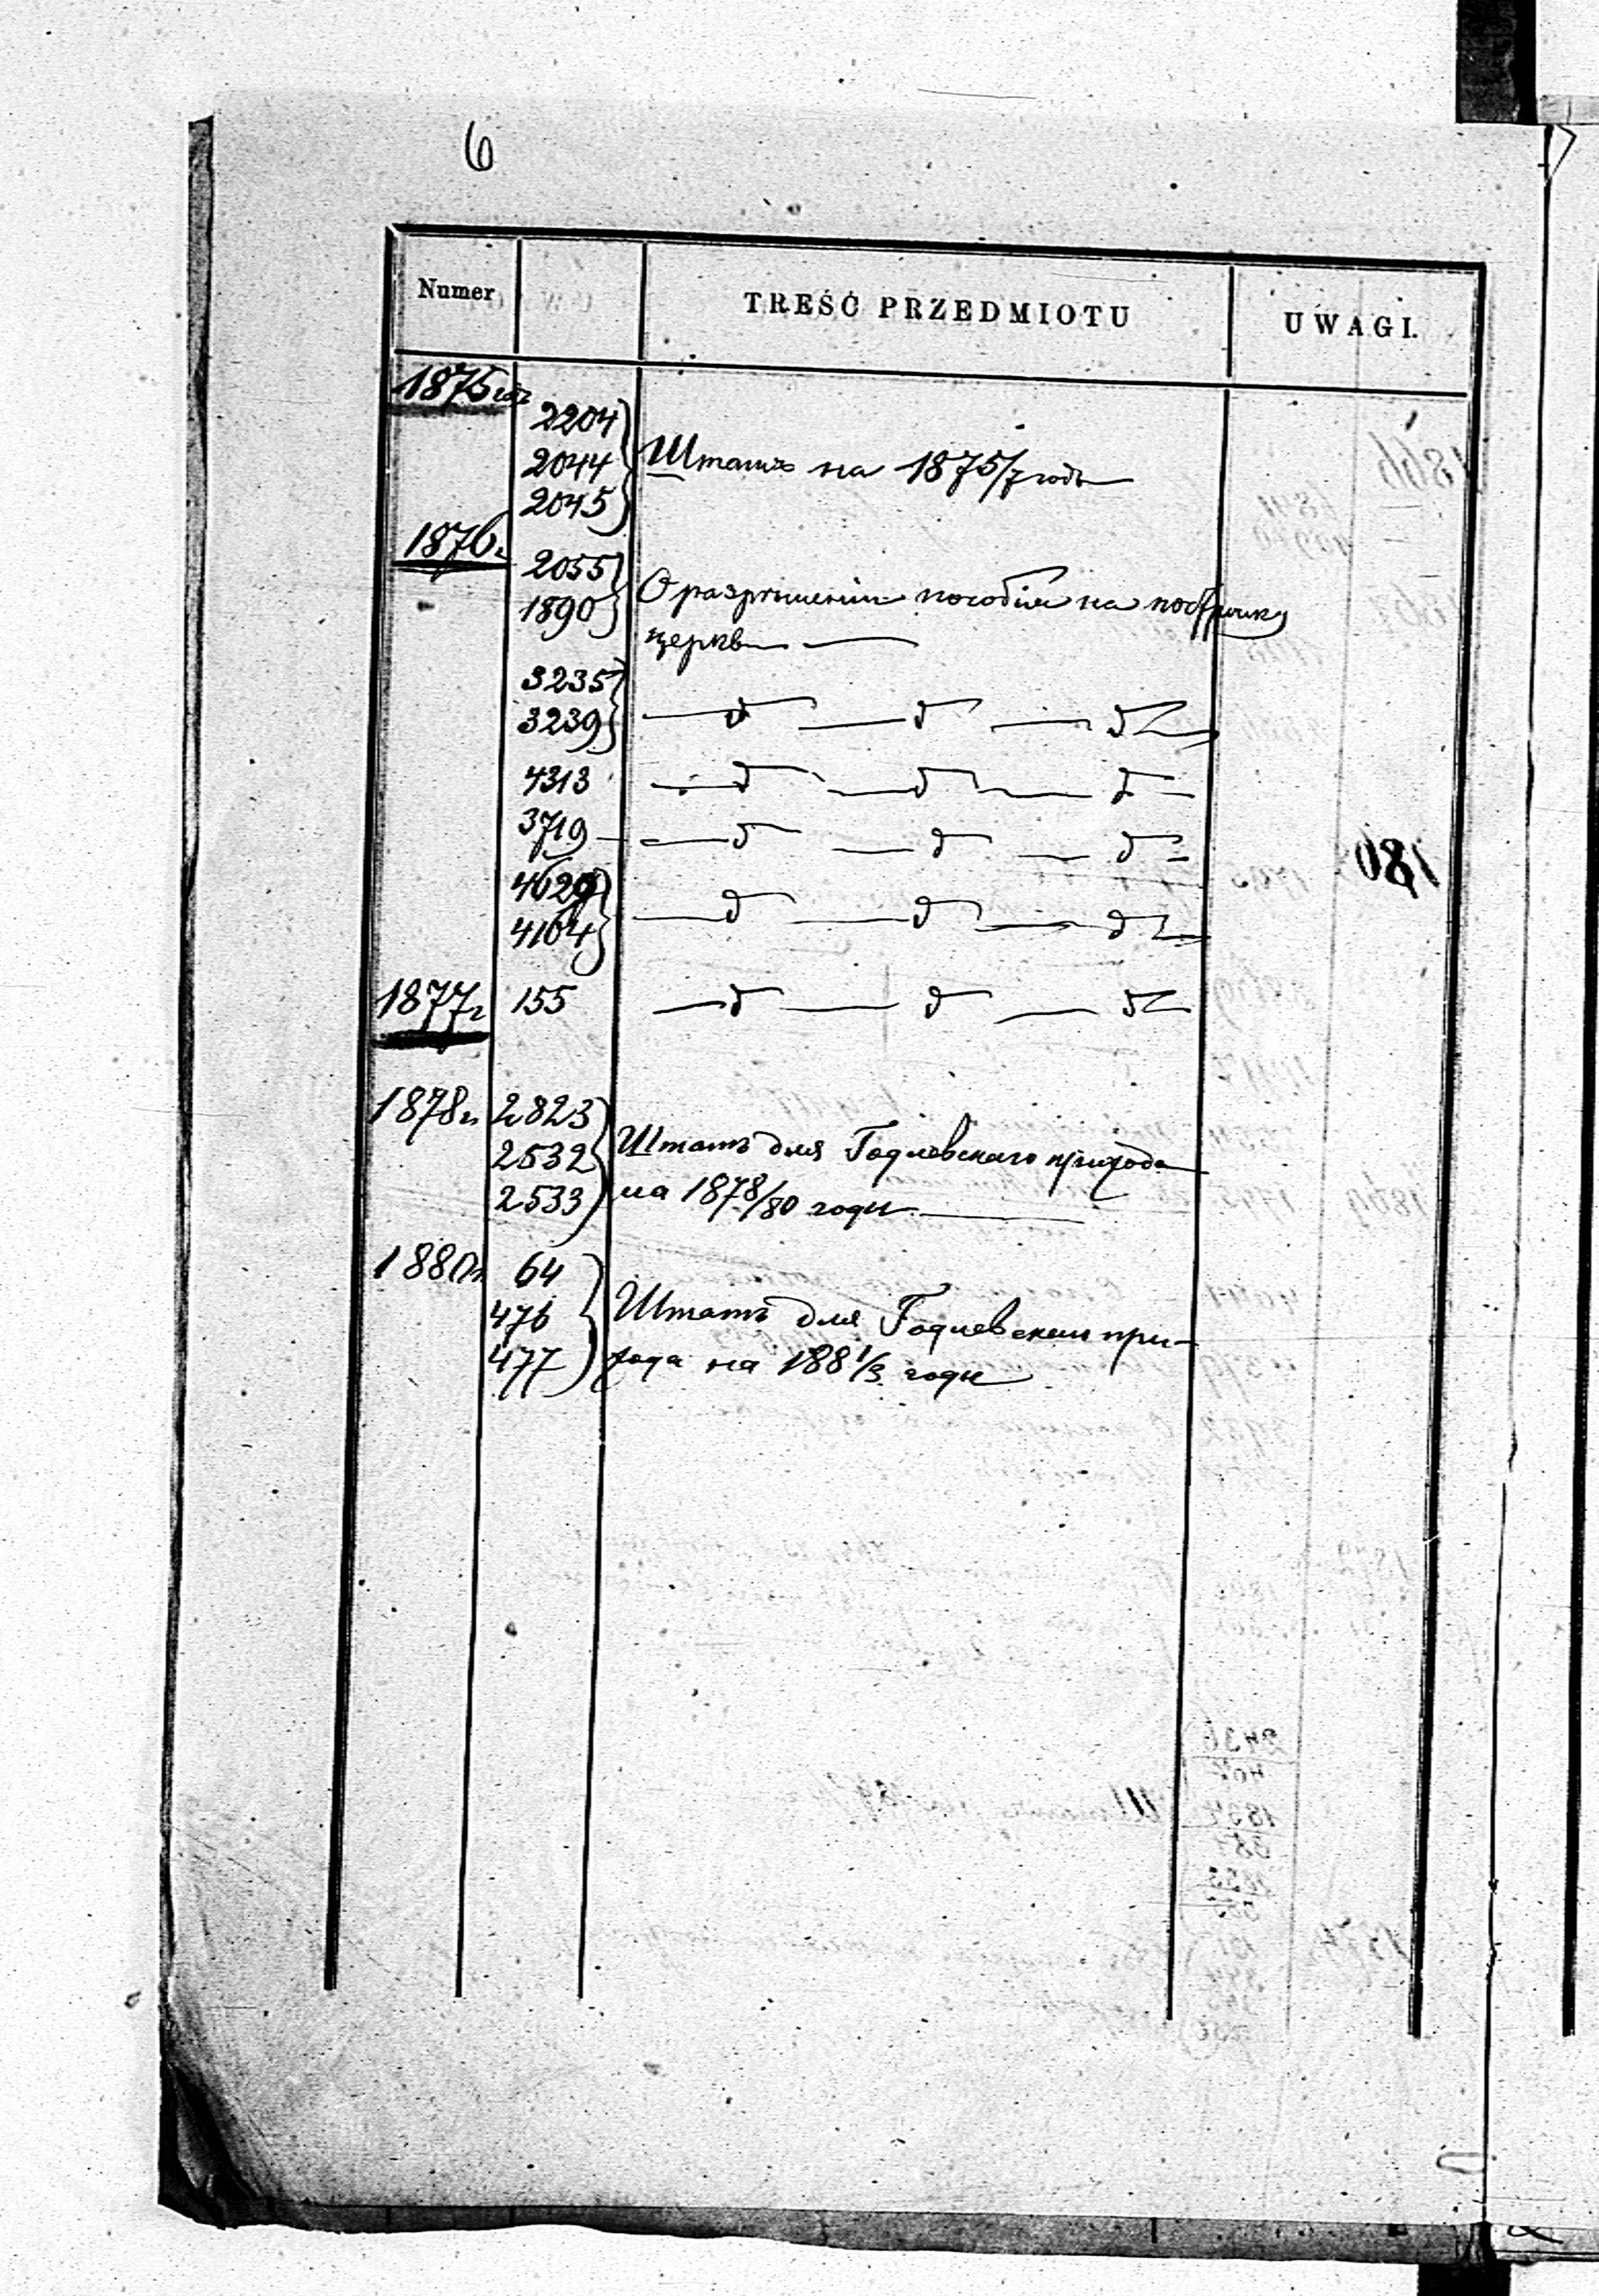 6
Numer TREŚĆ PRZEDMIOTU UWAGI.
1875 года
2204
2044 Штатъ на 1875/7 годъ
2045
1876 г.
2055 О разрѣшеніи пособія на постройку
1890 церкви
3235
3239 д д д
4313 д д д
3719 д д д
4629
4164 д д д
1877 г 155 д д д
1878 г. 2823
2532 Штатъ для Годлевскаго прихода
2533 на 1878/80 годы
1880 г. 64
476 Штатъ для Годлевскаго при-
477 хода на 1881/3 годы